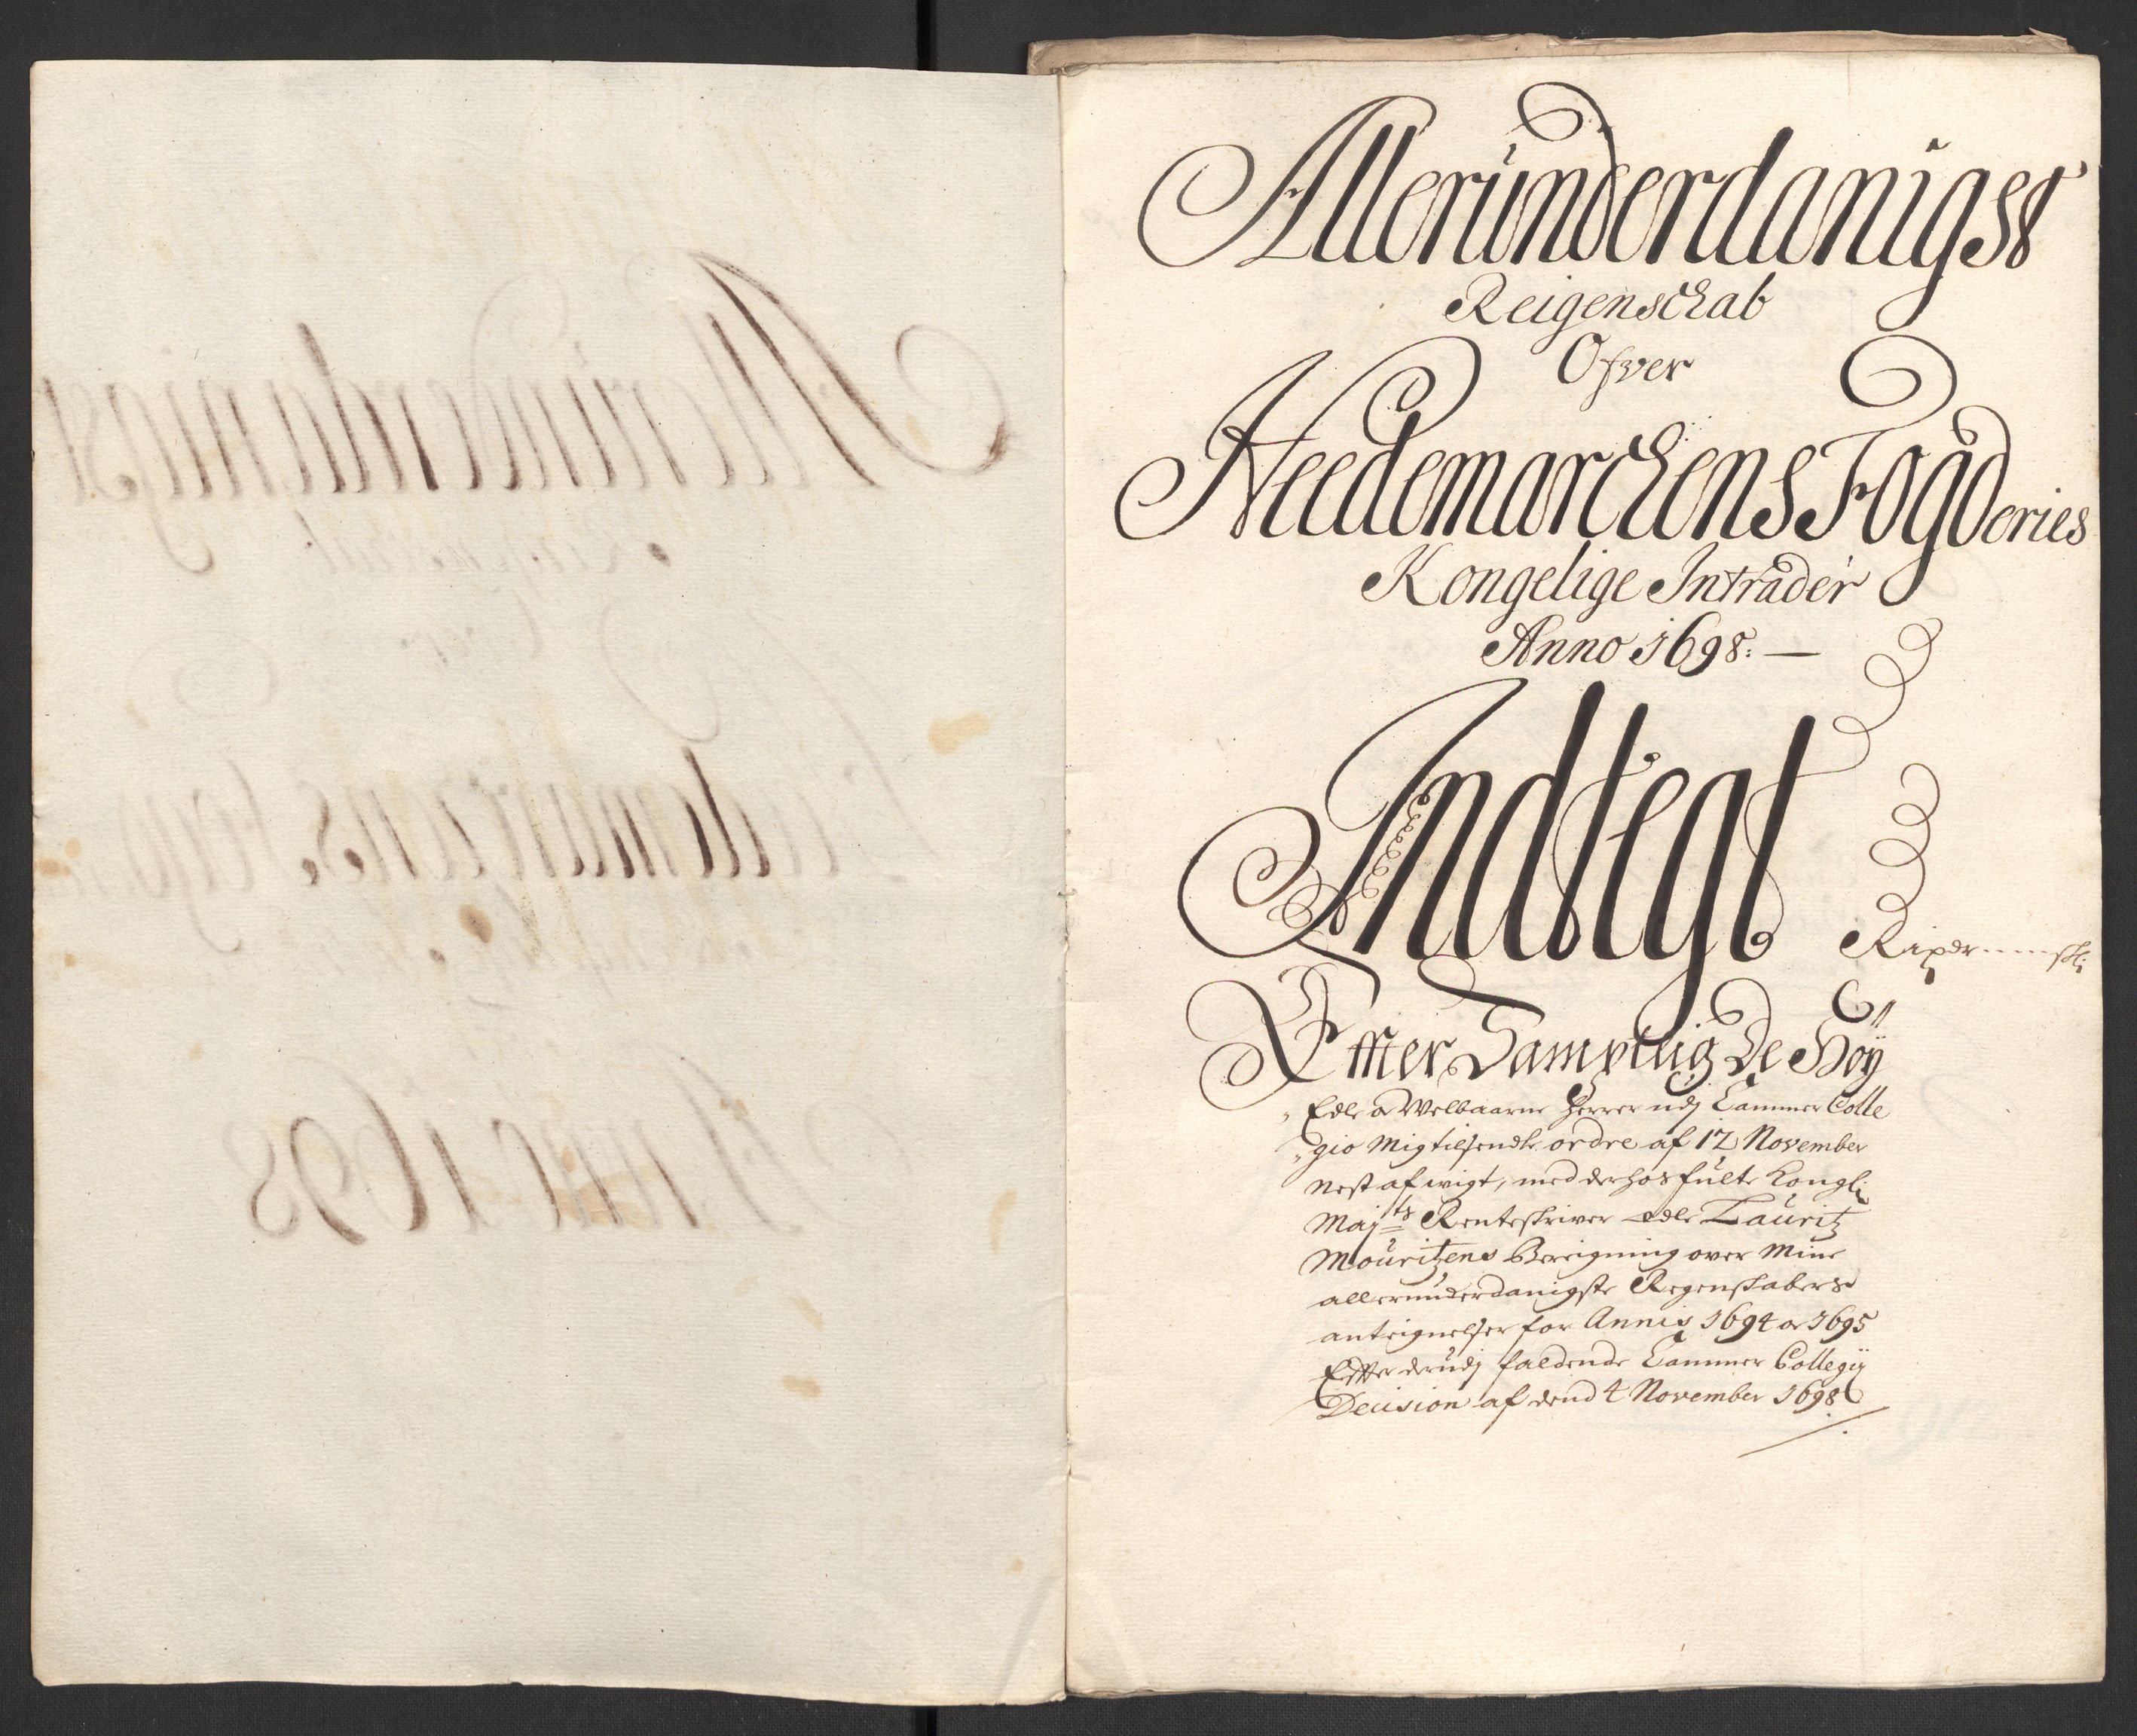 Alleründerdanigst
Reigenschab
Ofver
Heedemarchens Fogderies
Kongelige Intrader
Anno 1698: —
Indtegt
Rixdr ---- skl:
Effter Samptlig De Höÿ
Edle og Welbaarne Herrer udj Cammer Colle
gio mig tilsendte ordre af 12 November
nest afwigt, med derhos fulte Kongl:
Mayts Renteskriver Edle Lauritz
Mouritzens Bereigning over mine
allerunderdanigste Regenskabers
anteignelser for Annis 1694 og 1695
Effter derudj faldende Cammer Collegij
Decision af dend 4 November 1698